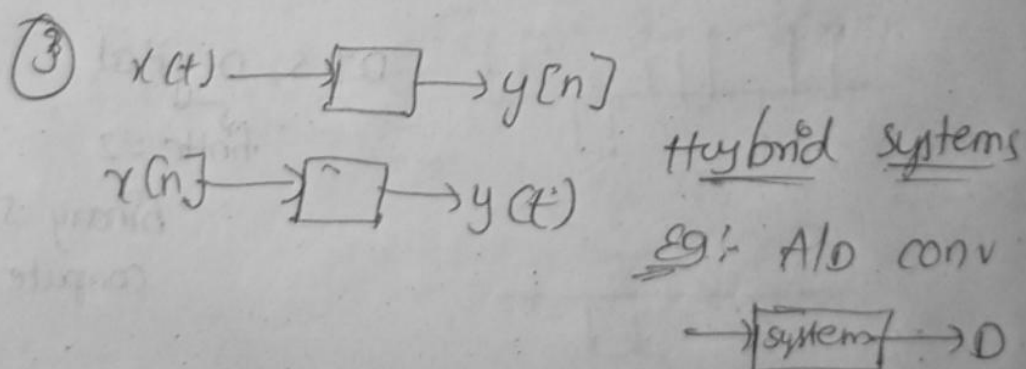 ③ x(t) → → y[n]
x[n] → → y(t)
Hybrid systems
Eg:- A/D conv
→ system → D